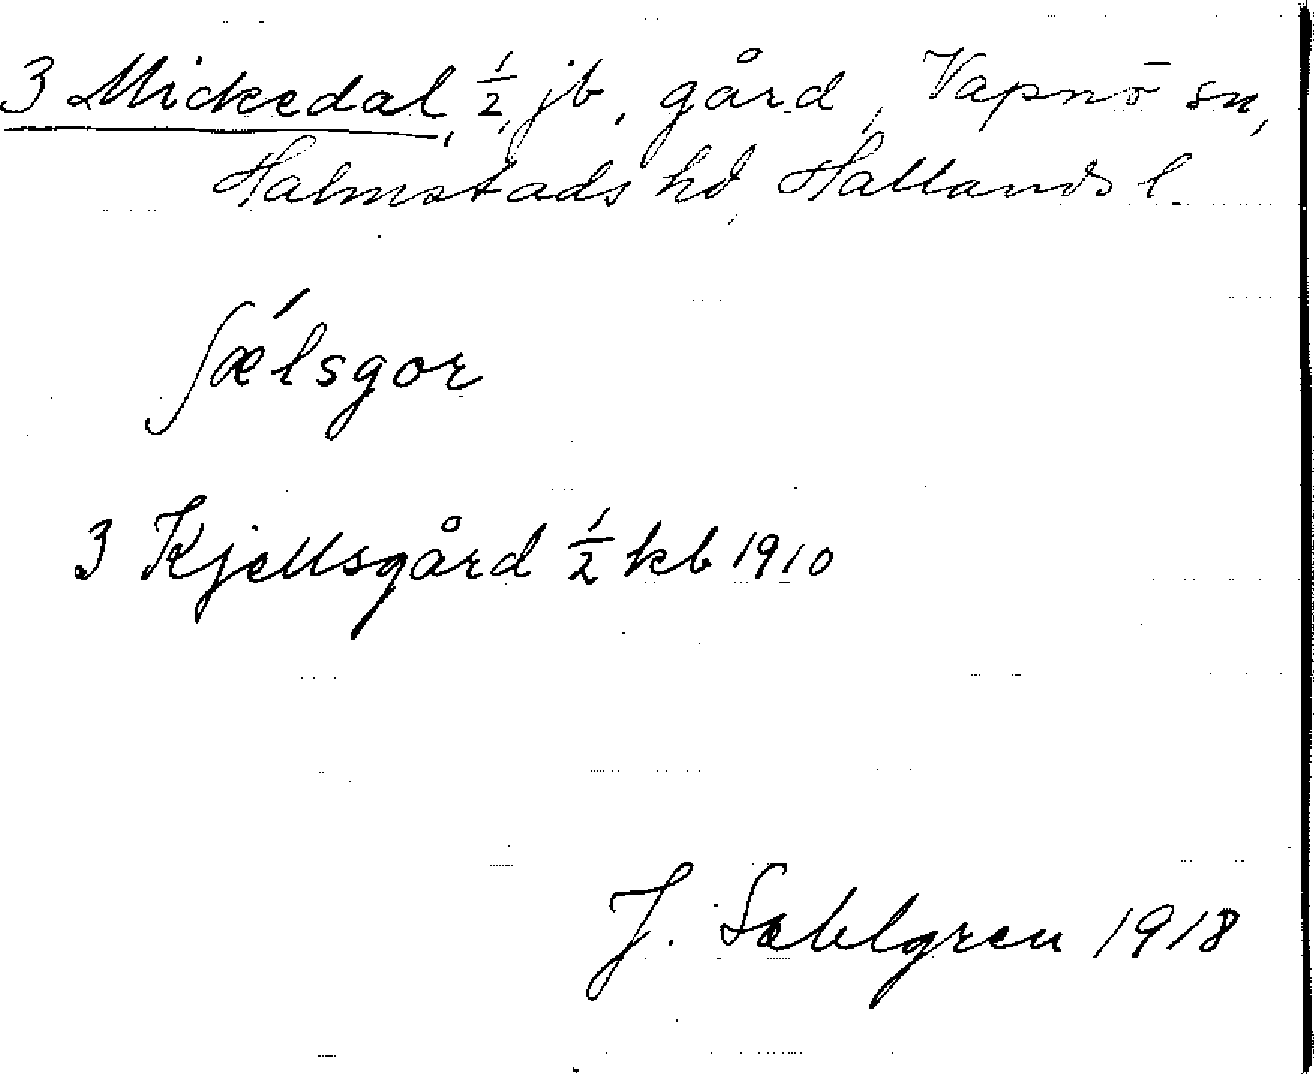 3 Mickedal, ½, jb, gård, Vapnö sn,
Halmstads hd, Hallands l.
ʃæ´lsgor
3 Kjellsgård ½ kb 1910
J. Sahlgren 1918